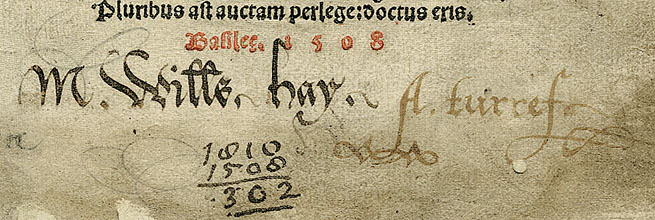 Pluribus ast auctam perlege: doctus eris.
Basilee. 1508
M. Wills. hay. A. turref
1810
1508
.302